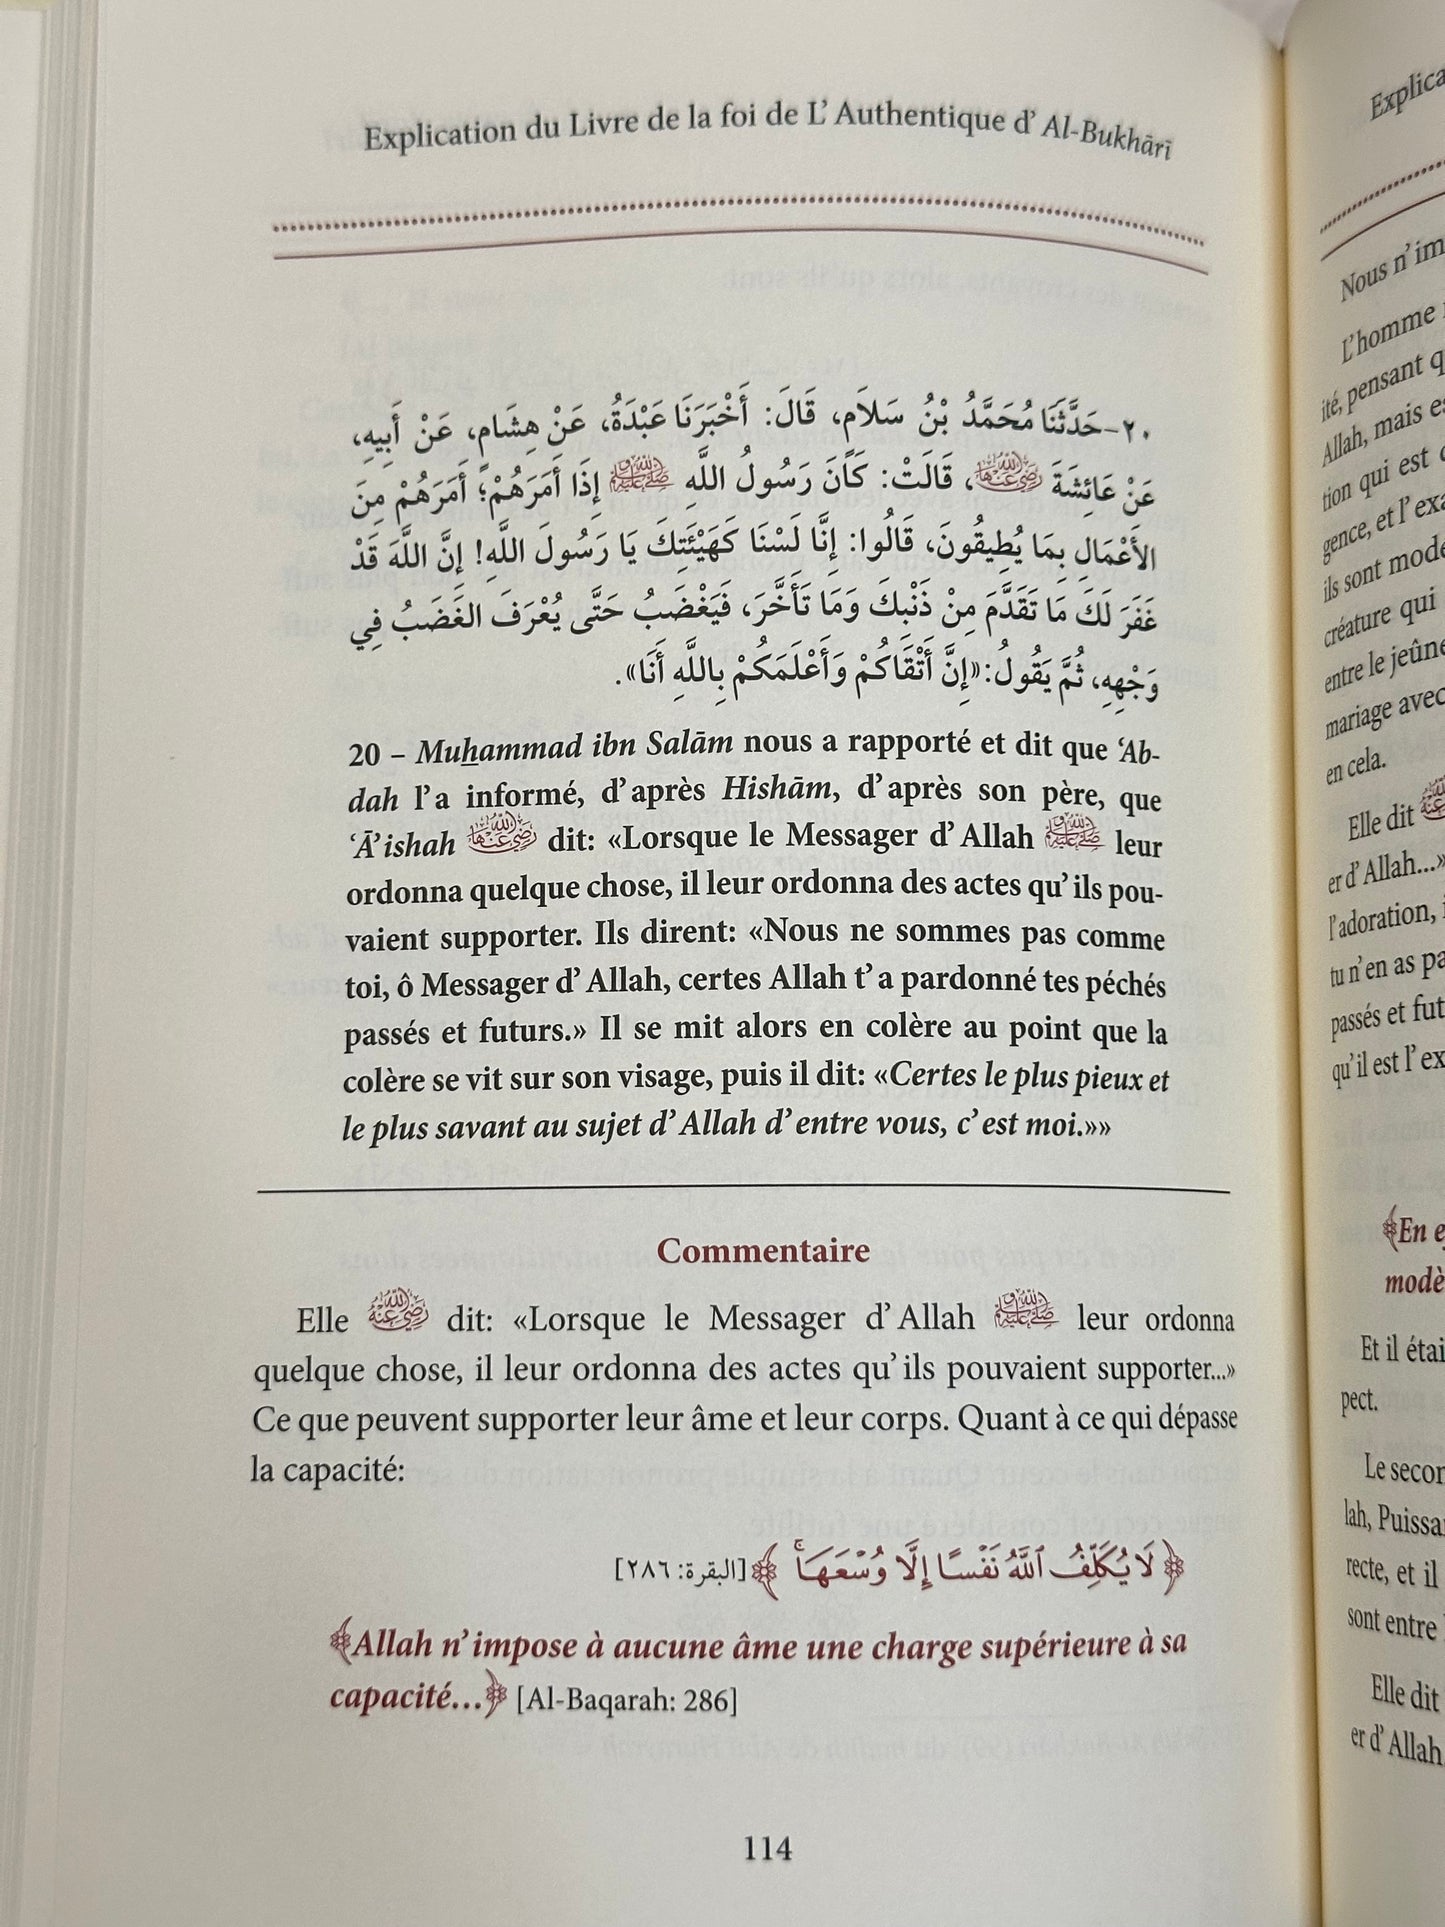 Explication du Livre de la foi de L’Authentique d’Al-Bukhārī
٢٠-حَدَّثَنَا مُحَمَّدُ بْنُ سَلَامٍ، قَالَ: أَخْبَرَنَا عَبْدَةُ، عَنْ هِشَامٍ، عَنْ أَبِيهِ،
عَنْ عَائِشَةَ رَضِيَ اللَّهُ عَنْهَا، قَالَتْ: كَانَ رَسُولُ اللَّهِ ﷺ إِذَا أَمَرَهُمْ؛ أَمَرَهُمْ مِنَ
الأَعْمَالِ بِمَا يُطِيقُونَ، قَالُوا: إِنَّا لَسْنَا كَهَيْئَتِكَ يَا رَسُولَ اللَّهِ! إِنَّ اللَّهَ قَدْ
غَفَرَ لَكَ مَا تَقَدَّمَ مِنْ ذَنْبِكَ وَمَا تَأَخَّرَ، فَيَغْضَبُ حَتَّى يُعْرَفَ الغَضَبُ فِي
وَجْهِهِ، ثُمَّ يَقُولُ:«إِنَّ أَتْقَاكُمْ وَأَعْلَمَكُمْ بِاللَّهِ أَنَا».
20 – Muẖammad ibn Salām nous a rapporté et dit que ‘Ab-
dah l’a informé, d’après Hishām, d’après son père, que
‘Ā’ishah رَضِيَ اللَّهُ عَنْهَا dit: «Lorsque le Messager d’Allah ﷺ leur
ordonna quelque chose, il leur ordonna des actes qu’ils pou-
vaient supporter. Ils dirent: «Nous ne sommes pas comme
toi, ô Messager d’Allah, certes Allah t’a pardonné tes péchés
passés et futurs.» Il se mit alors en colère au point que la
colère se vit sur son visage, puis il dit: «Certes le plus pieux et
le plus savant au sujet d’Allah d’entre vous, c’est moi.»»
Commentaire
Elle رَضِيَ اللَّهُ عَنْهُ dit: «Lorsque le Messager d’Allah ﷺ leur ordonna
quelque chose, il leur ordonna des actes qu’ils pouvaient supporter...»
Ce que peuvent supporter leur âme et leur corps. Quant à ce qui dépasse
la capacité:
﴿لَا يُكَلِّفُ ٱللَّهُ نَفْسًا إِلَّا وُسْعَهَاۚ ﴾[البقرة: ٢٨٦]
﴾Allah n’impose à aucune âme une charge supérieure à sa
capacité...﴿ [Al-Baqarah: 286]
114
Explica
Nous n’im
L’homme
ité, pensant q
Allah, mais es
tion qui est
gence, et l’exa
ils sont mode
créature qui
entre le jeûne
mariage avec
en cela.
Elle dit
er d’Allah...»
l’adoration,
tu n’en as pa
passés et fut
qu’il est l’ex
﴾En e
modè
Et il étai
pect.
Le secon
lah, Puissa
recte, et il
sont entre
Elle dit
er d’Allah